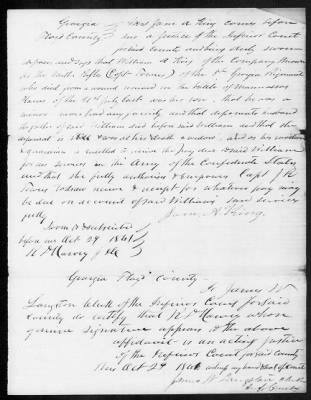 Georgia } Mrs Jane A King comes before
Floyd County } me a Justice of the Inferior Court
said County and being duly sworn
deposes and says that William A King of the Company known
as the Smith Rifles (Capt Towers) of the 8th Georgia Regiment
who died from a wound received in the battle of Manassas
Plains of the 21st July last was her son that he was a
minor never had any family and that deponent
father of said William died before said William and that
deponent is and as his mother
is entitled to receive the pay due said William
for his services in the Army of the Confederate States
and that she fully authorises & empowers Capt J R
Towers to draw receive & receipt for whatever pay may
be due on account of said Williams said services
fully
Jane A King
Sworn to & subscribed
before me Oct 29 1861
N J Garvey J I C
Georgia Floyd County
I James W
Langston Clerk of the Inferior Court for said
County do certify that whose
genuine signature appears to the above
affidavit is an acting Justice
of the Inferior Court for said County
this Oct 29 1861
James W Langston Clerk